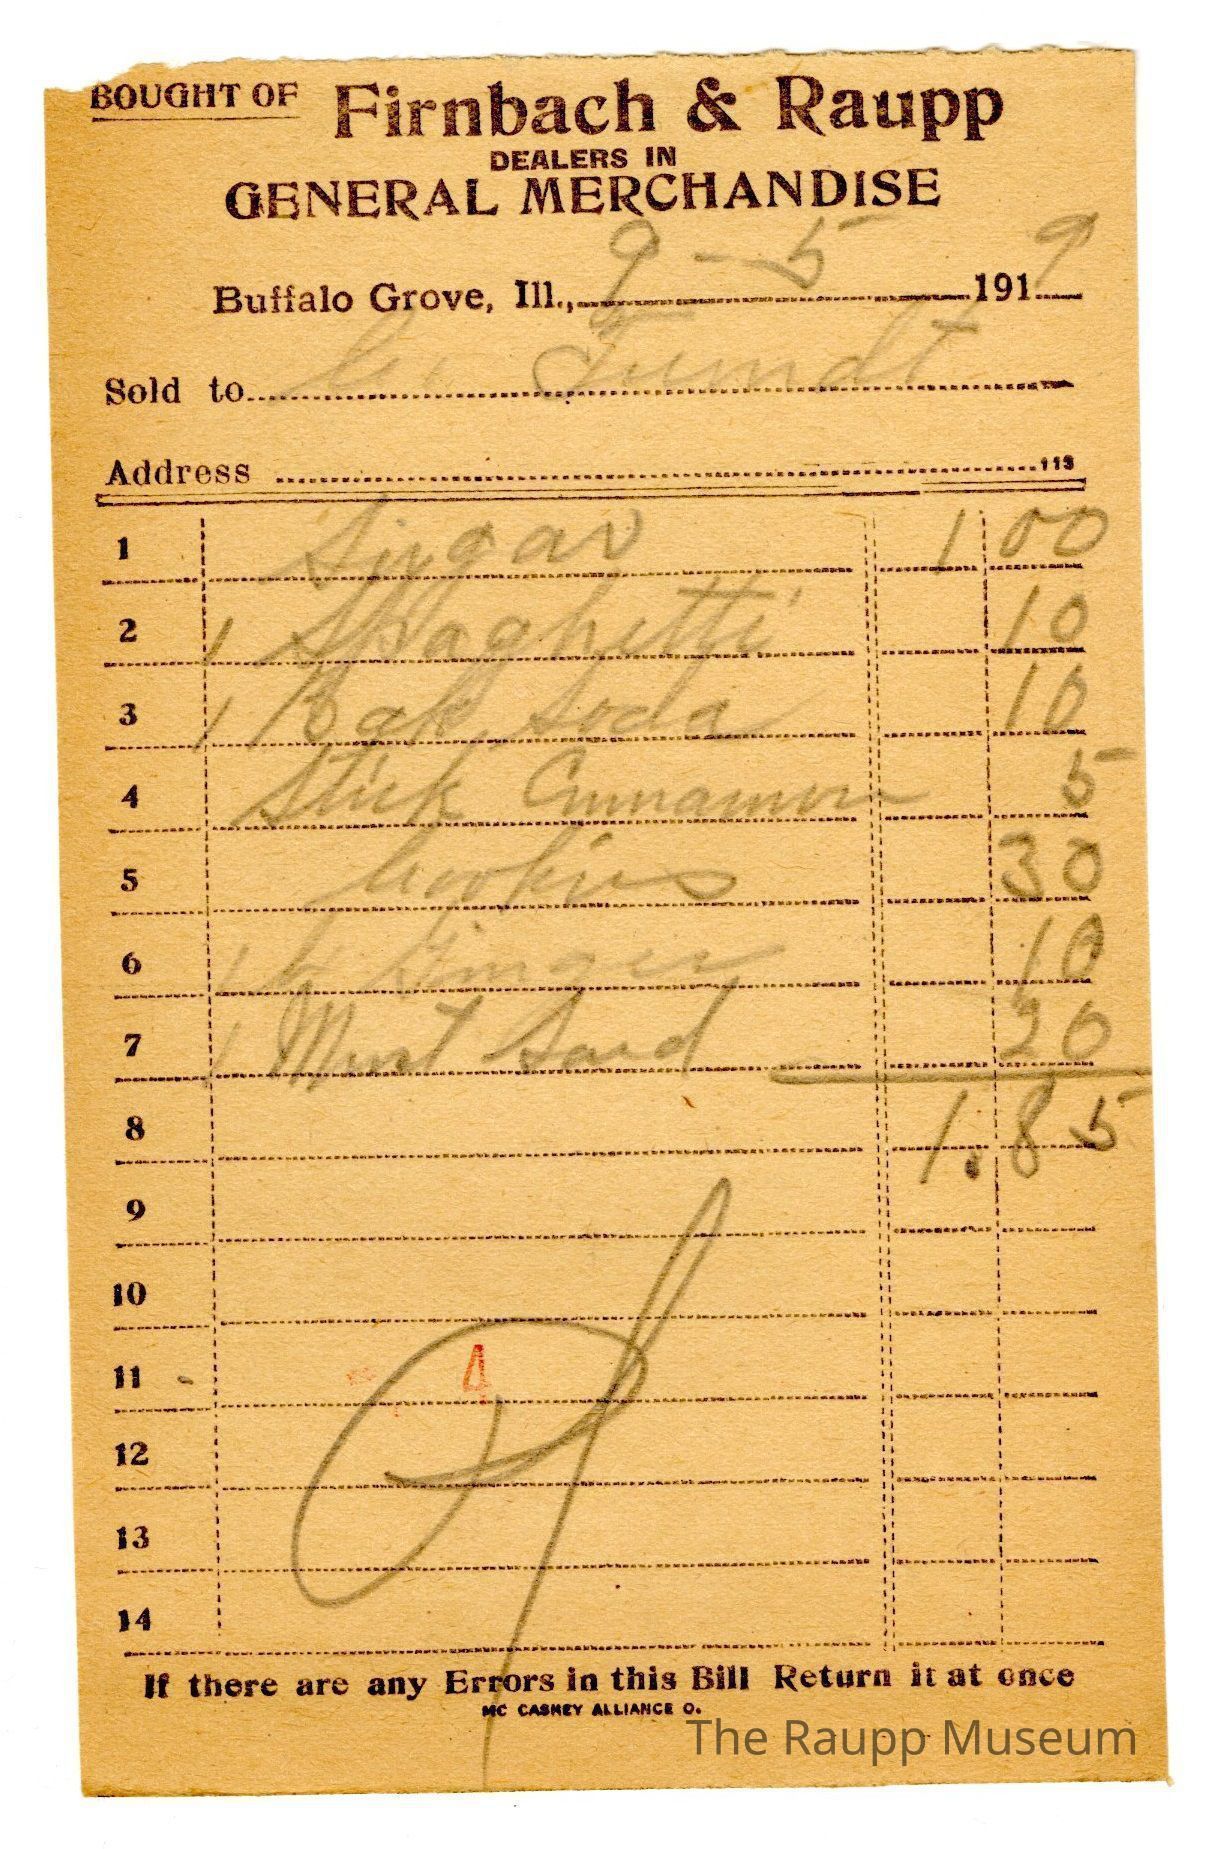 BOUGHT OF Firnbach & Raupp
DEALERS IN
GENERAL MERCHANDISE
Buffalo Grove, Ill., 9-5 1919
Sold to
Address 113
1 Sugar 1 00
2 1 Spaghetti 10
3 1 Bak Soda 10
4 Stick Cinnamon 5
5 Cookies 30
6 1 Ginger 10
7 1 Must Sard 20
8 1.85
9
10
11 4
12
13
14
If there are any Errors in this Bill Return it at once
MC CASKEY ALLIANCE O.
The Raupp Museum